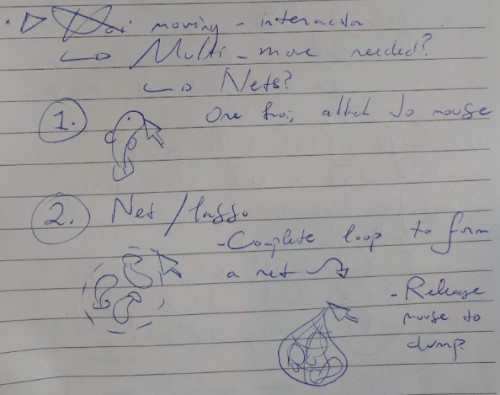 moving - interaction
↳ Multi-move needed?
↳ Nets?
1. One koi, attach to mouse
2. Net/lasso
- Complete loop to form
a net
- Release
mouse to
dump